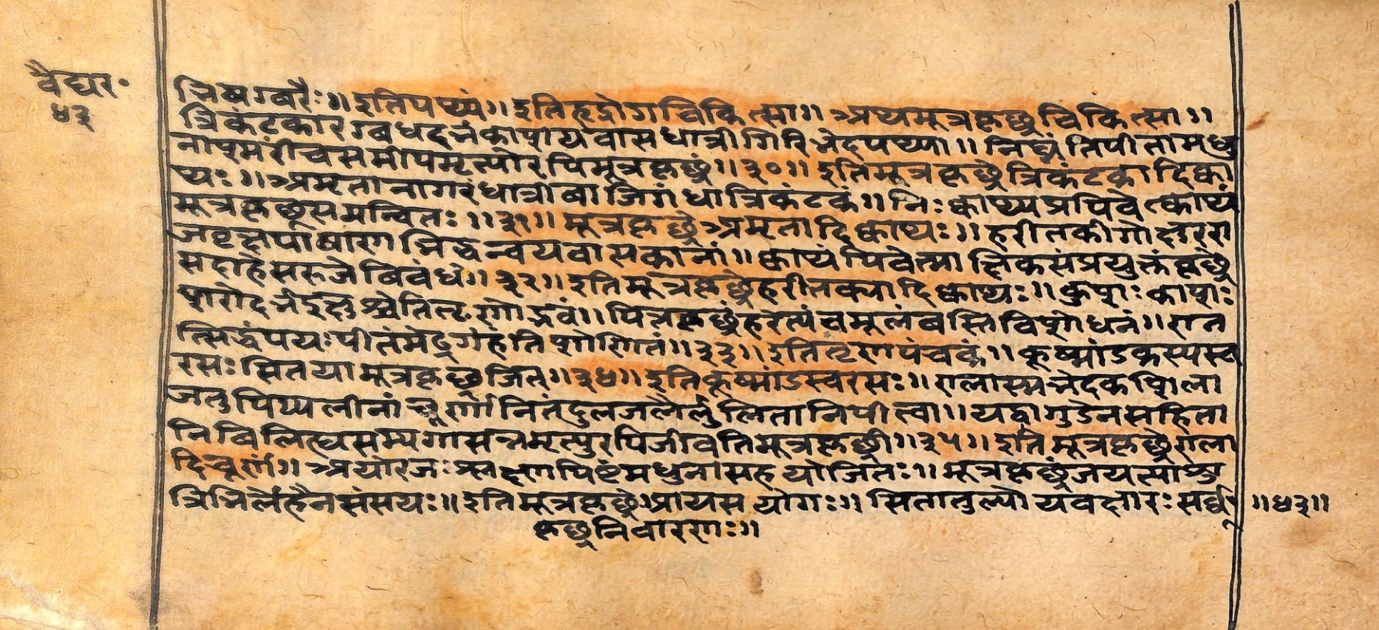 वैद्यर॰
४३
भिषग्वरैः॥ इतिपथ्यं॥ इतिहृद्रोगचिकित्सा॥ अथमूत्रकृछ्रचिकित्सा॥
त्रिकंटकारग्वधदर्भकाशयवासधात्रीगिरिभेदपथ्या॥ निघ्नंतिपीतामधु
नाश्मरींचसमीपमृत्योरपिमूत्रकृछ्रं॥३०॥ इतिमूत्रकृछ्रेत्रिकंटकादिक्वा
थः॥ अमृतानागरंधात्रीवाजिगंधात्रिकंटकं॥ निःक्वाथ्यप्रपिवेत्क्वाथं
मूत्रकृछ्रसमन्वितः॥३१॥ मूत्रकृछ्रेअमृतादिक्वाथः॥ हरीतकीगोक्षुररा
जवृक्षपाषाणभिद्धन्वयवासकानां॥ क्वाथंपिवेन्माक्षिकसंप्रयुक्तंकृछ्रे
सदाहेसरुजेविबंधे॥३२॥ इतिमूत्रकृछ्रेहरीतक्यादिक्वाथः॥ कुशः काशः
शरोदर्भइक्षुश्चेतितृणोद्भवं॥ पित्तकृछ्रहरंपंचमूलंबस्तिविशोधनं॥ एत
त्सिद्धंपयःपीतंमेढ्रगंहंतिशोणितं॥३३॥ इतितृणपंचकं॥ कूष्मांडकस्यस्व
रसः सितयामूत्रकृछ्रजित्॥३४॥ इतिकूष्मांडस्वरसः॥ एलाश्मभेदकशिला
जतुपिप्पलीनां चूर्णानितंदुलजलैर्लुलितानिपीत्वा॥ यद्वागुडेनसहिता
निविलिह्यसम्यगासन्नमृत्युरपिजीवतिमूत्रकृछ्री॥३५॥ इतिमूत्रकृछ्रेएला
दिचूर्णं॥ अयोरजः श्लक्ष्णपिष्टंमधुनासहयोजितः॥ मूत्रकृछ्रंजयत्याशु
त्रिभिर्लेहैनसंसयः॥ इतिमूत्रकृछ्रेआयसयोगः॥ सितातुल्योयवक्षारः सर्व्व ॥४३॥
कृछ्रनिवारणः॥